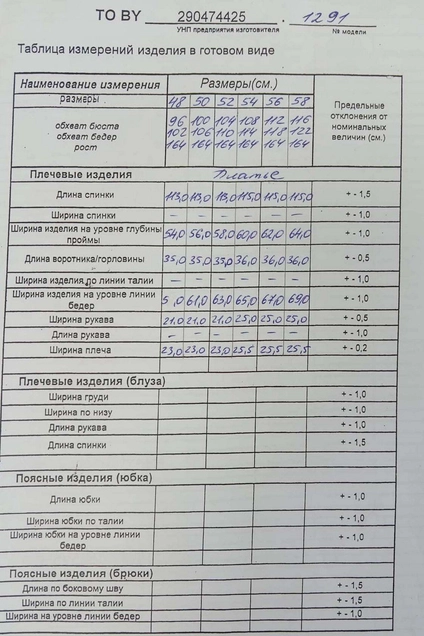 ТО BY 290474425 . 1291
УНП предприятия изготовителя № модели
Таблица измерений изделия в готовом виде
Наименование измерения Размеры(см.) Предельные отклонения от номинальных величин (см.)
размеры 48 50 52 54 56 58
обхват бюста 96 100 104 108 112 116
обхват бедер 102 106 110 114 118 122
рост 164 164 164 164 164 164
Плечевые изделия Платье
Длина спинки 113,0 113,0 113,0 115,0 115,0 115,0 + - 1,5
Ширина спинки – – – – – – + - 1,0
Ширина изделия на уровне глубины проймы 54,0 56,0 58,0 60,0 62,0 64,0 + - 1,0
Длина воротника/горловины 35,0 35,0 35,0 36,0 36,0 36,0 + - 0,5
Ширина изделия по линии талии – – – – – – + - 1,0
Ширина изделия на уровне линии бедер 61,0 63,0 65,0 67,0 69,0 + - 1,0
Ширина рукава 21,0 21,0 21,0 25,0 25,0 25,0 + - 0,5
Длина рукава – – – – – – + - 1,0
Ширина плеча 23,0 23,0 23,0 25,5 25,5 25,5 + - 0,2
Плечевые изделия (блуза)
Ширина груди + - 1,0
Ширина по низу + - 1,0
Длина рукава + - 1,0
Длина спинки + - 1,5
Поясные изделия (юбка)
Длина юбки + - 1,0
Ширина юбки по талии + - 1,0
Ширина юбки на уровне линии бедер + - 1,0
Поясные изделия (брюки)
Длина по боковому шву + - 1,5
Ширина по линии талии + - 1,0
Ширина на уровне линии бедер + - 1,0